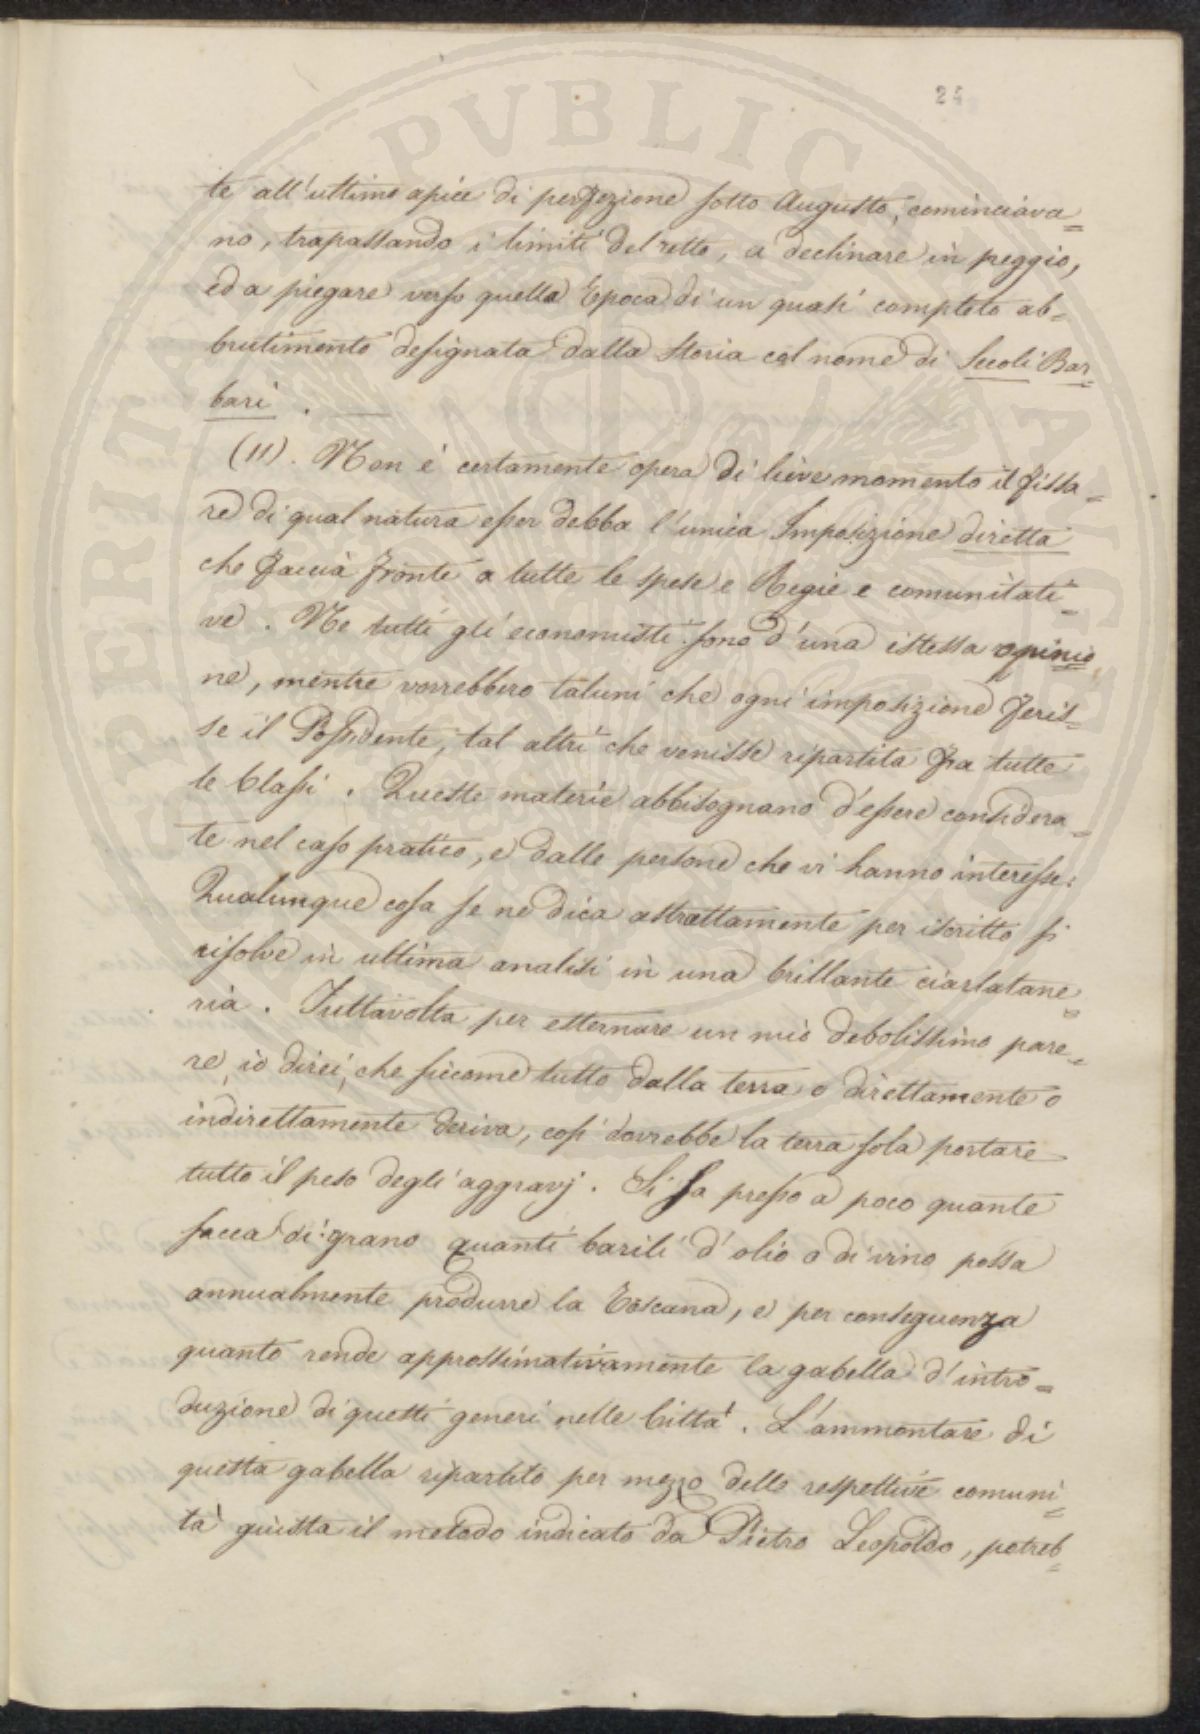 24
te all'ultimo apice di perfezione sotto Augusto, cominciava=
no, trapassando i limiti del retto, a declinare in peggio,
ed a piegare verso quella Epoca di un quasi completo ab=
brutimento designata dalla Storia col nome di Secoli Bar=
bari . —
(11). Non è certamente opera di lieve momento il fissa=
re di qual natura esser debba l'unica Imposizione diretta
che faccia fronte a tutte le spese e Regie e comunitati=
ve . Ne tutti gli economisti sono d'una istessa opinio
ne, mentre vorrebbero taluni che ogni imposizione feris=
se il Possidente, tal altri che venisse ripartita fra tutte
le Classi . Queste materie abbisognano d'essere considera=
te nel caso pratico, e dalle persone che vi hanno interesse:
Qualunque cosa se ne dica astrattamente per iscritto si
risolve in ultima analisi in una brillante ciarlatane=
ria . Tuttavolta per esternare un mio debolissimo pare=
re, io direi, che siccome tutto dalla terra o direttamente o
indirettamente deriva, così dovrebbe la terra sola portare
tutto il peso degli aggravj . Si sa presso a poco quante
sacca di grano quanti barili d'olio o di vino possa
annualmente produrre la Toscana, e per conseguenza
quanto rende approssimativamente la gabella d'intro=
duzione di questi generi nelle Città . L'ammontare di
questa gabella ripartito per mezzo delle respettive comuni=
tà giusta il metodo indicato da Pietro Leopoldo, potreb=
PERITAT PVBLICAE AVGEN